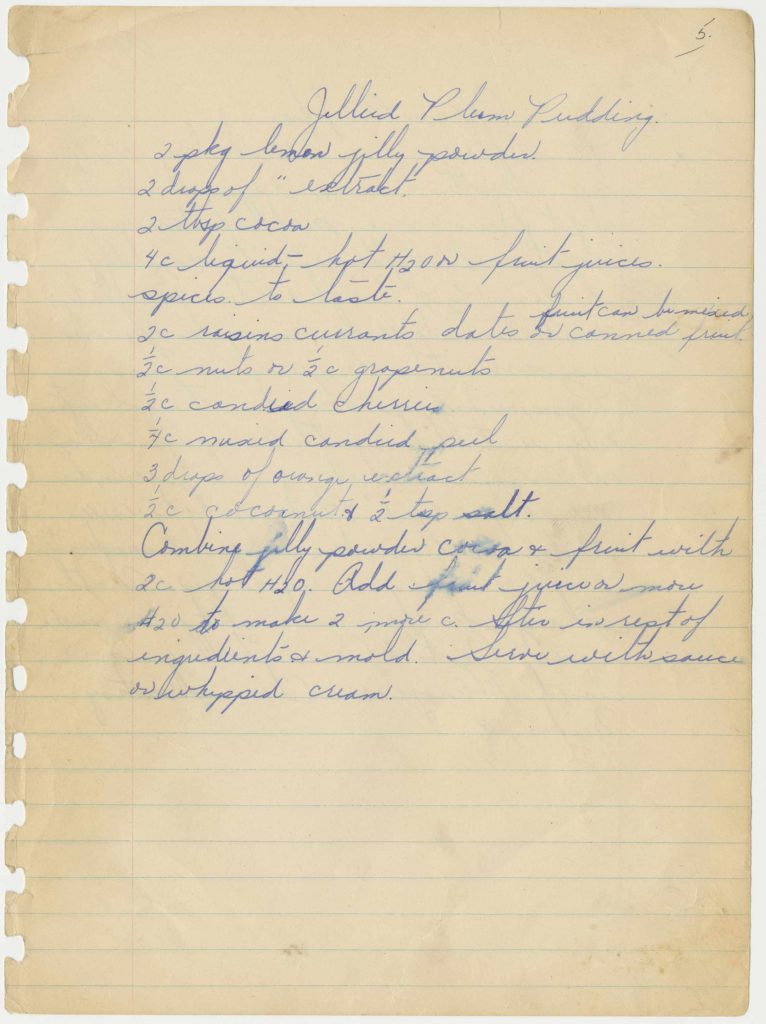 5.
Jellied Plum Pudding.
2 pkg lemon jelly powder.
2 drops of " extract.
2 tbsp cocoa
4c liquid - hot H2O or fruit juices.
spices to taste.
fruit can be mixed
2c raisins currants dates or canned fruit.
½c nuts or ½c grapenuts
½c candied cherries
¼c mixed candied peel
3 drops of orange extract
½c cocoanut & ½ tsp salt.
Combine jelly powder cocoa & fruit with
2c hot H2O. Add fruit juice or more
H2O to make 2 more c. Stir in rest of
ingredients & mold. Serve with sauce
or whipped cream.